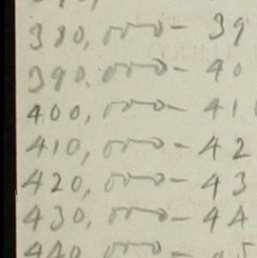 380,000 - 39
390.000 - 40
400,000 - 41
410,000 - 42
420,000 - 43
430,000 - 44
440 000 -